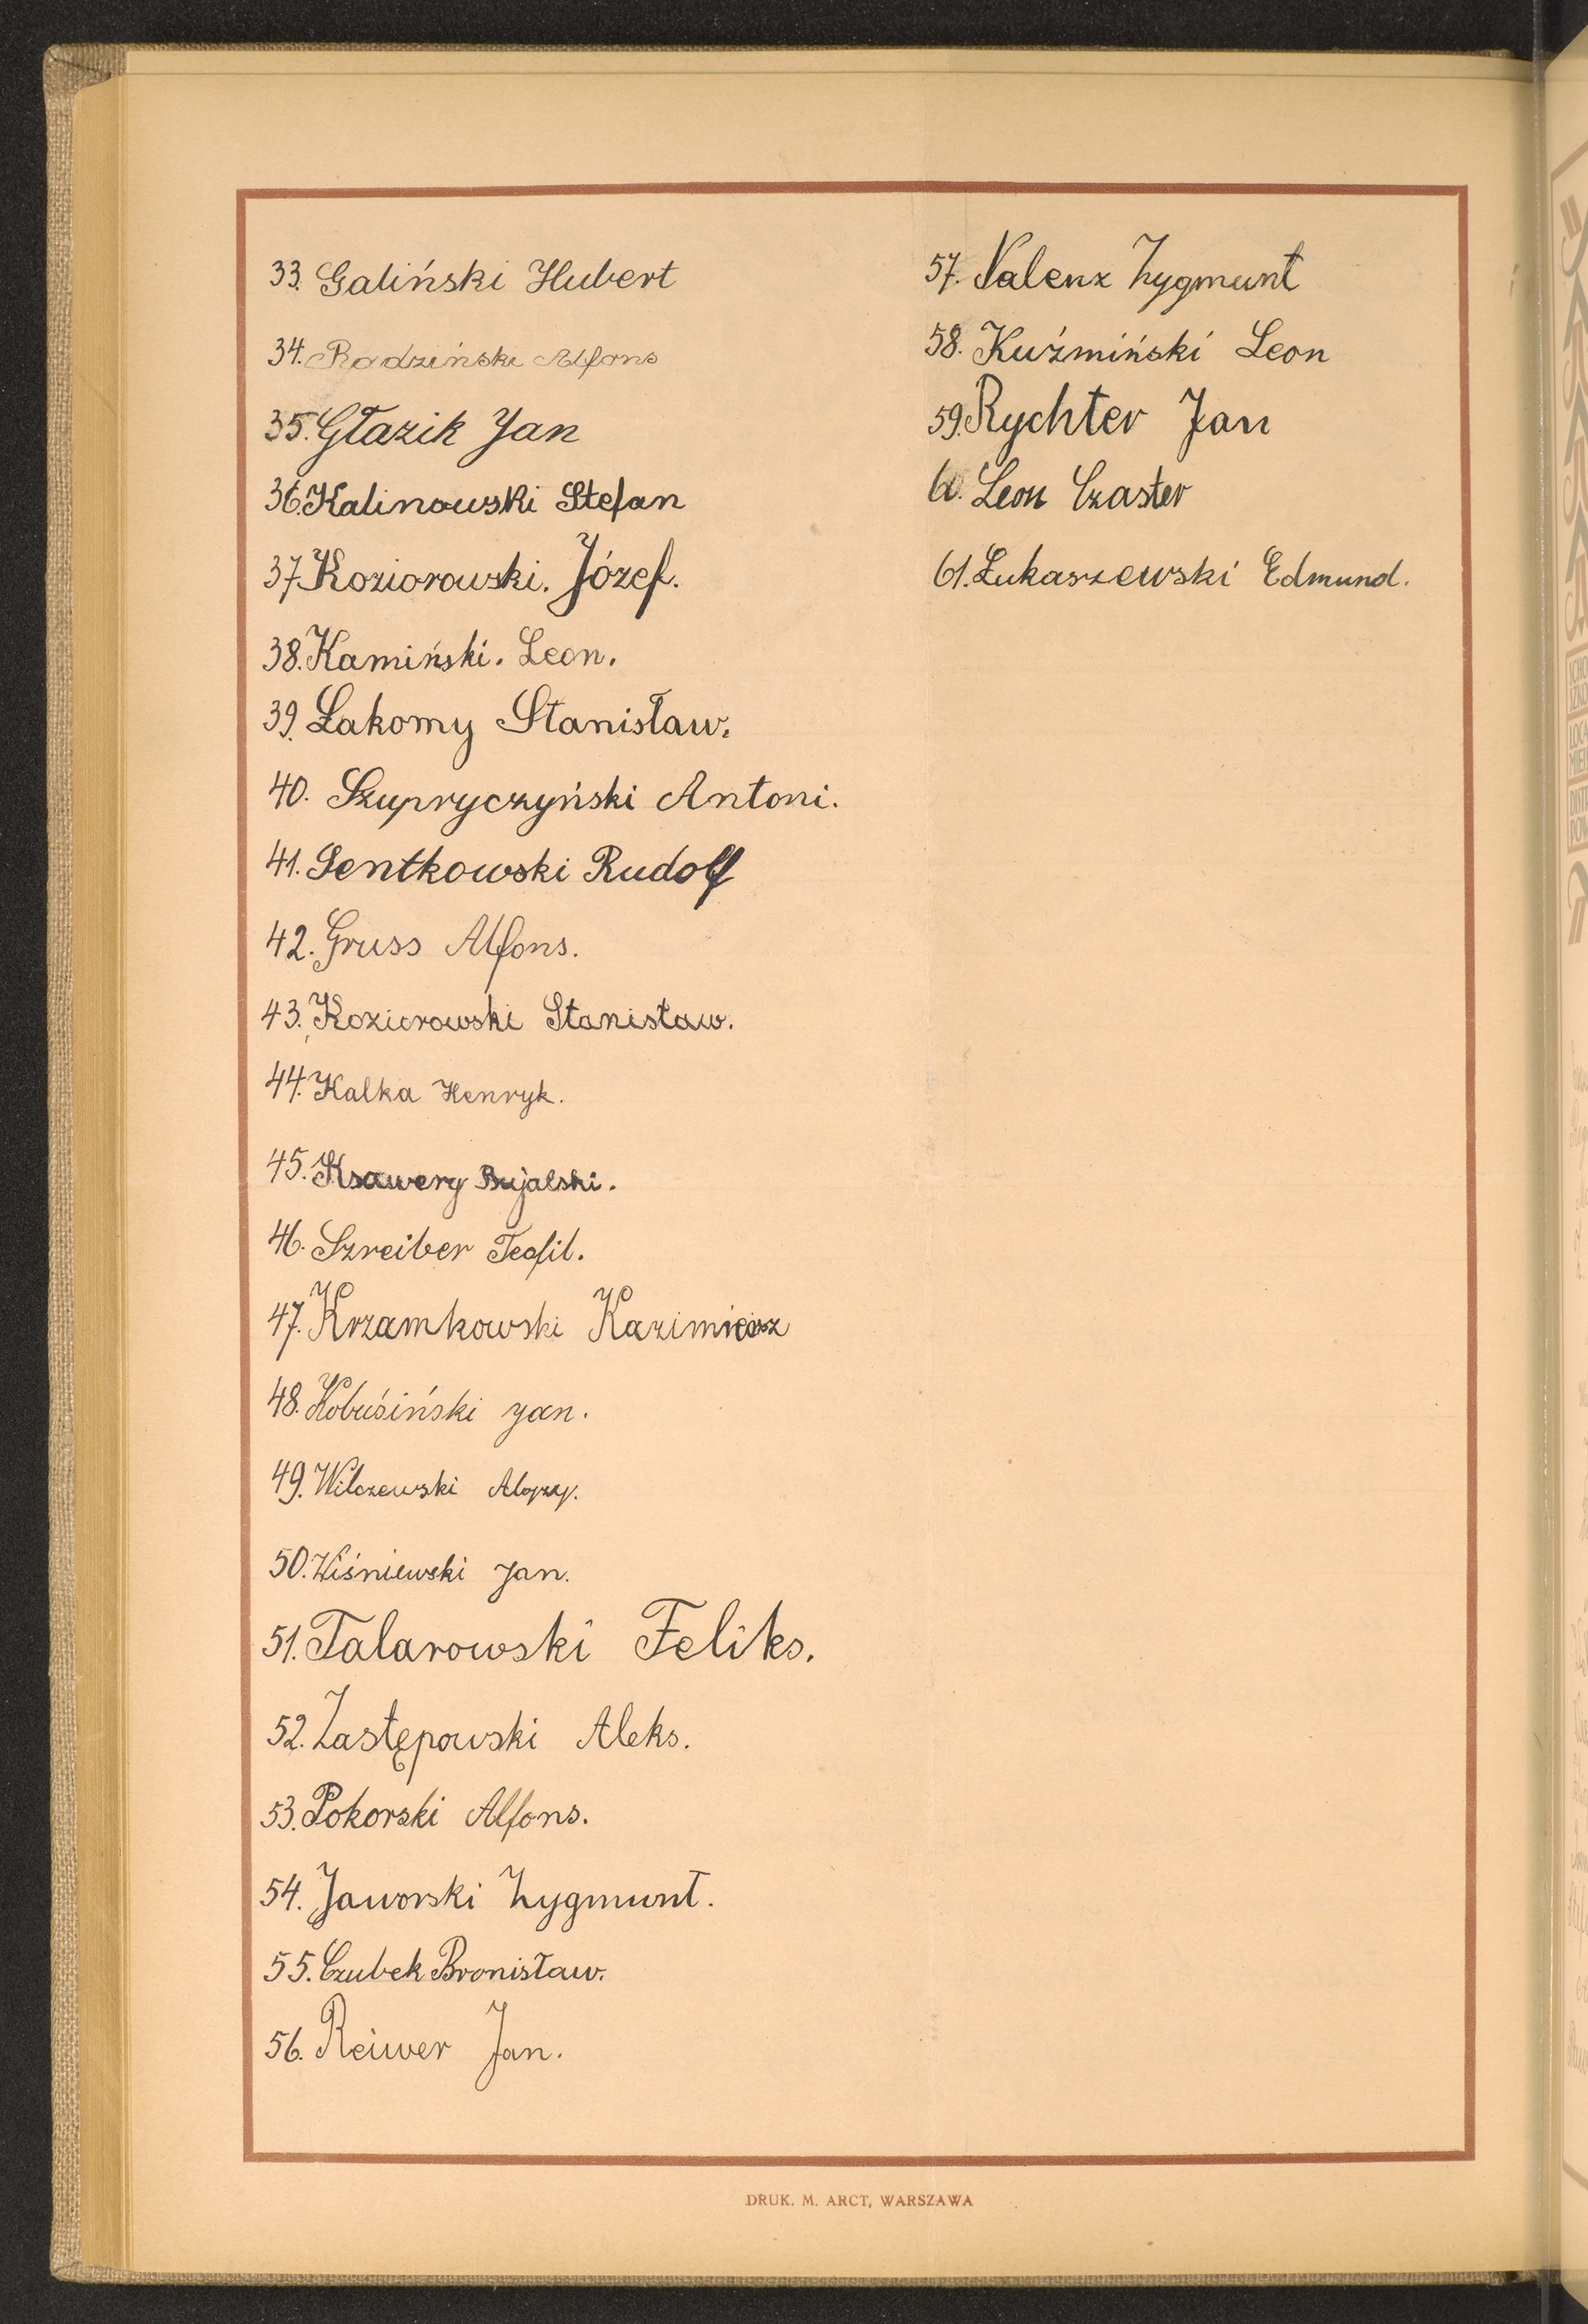 33. Galiński Hubert
34. Radziński Alfons
35. Głazik Jan
36. Kalinowski Stefan
37. Koziorowski. Józef.
38. Kamiński. Leon.
39. Łakomy Stanisław.
40. Szupryczyński Antoni.
41. Sentkowski Rudolf
42. Gruss Alfons.
43. Koziorowski Stanisław.
44. Kalka Henryk.
45. Ksawery Bujalski.
46. Szreiber Teofil.
47. Krzamkowski Kazimierz
48. Kobusiński Jan.
49. Wilczewski Alojzy.
50. Wiśniewski Jan.
51. Talarowski Feliks.
52. Zastępowski Aleks.
53. Pokorski Alfons.
54. Jaworski Zygmunt.
55. Czubek Bronisław.
56. Reiwer Jan.
57. Nalenz Zygmunt
58. Kuźmiński Leon
59. Rychter Jan
60. Leon Czaster
61. Łukaszewski Edmund.
DRUK. M. ARCT, WARSZAWA